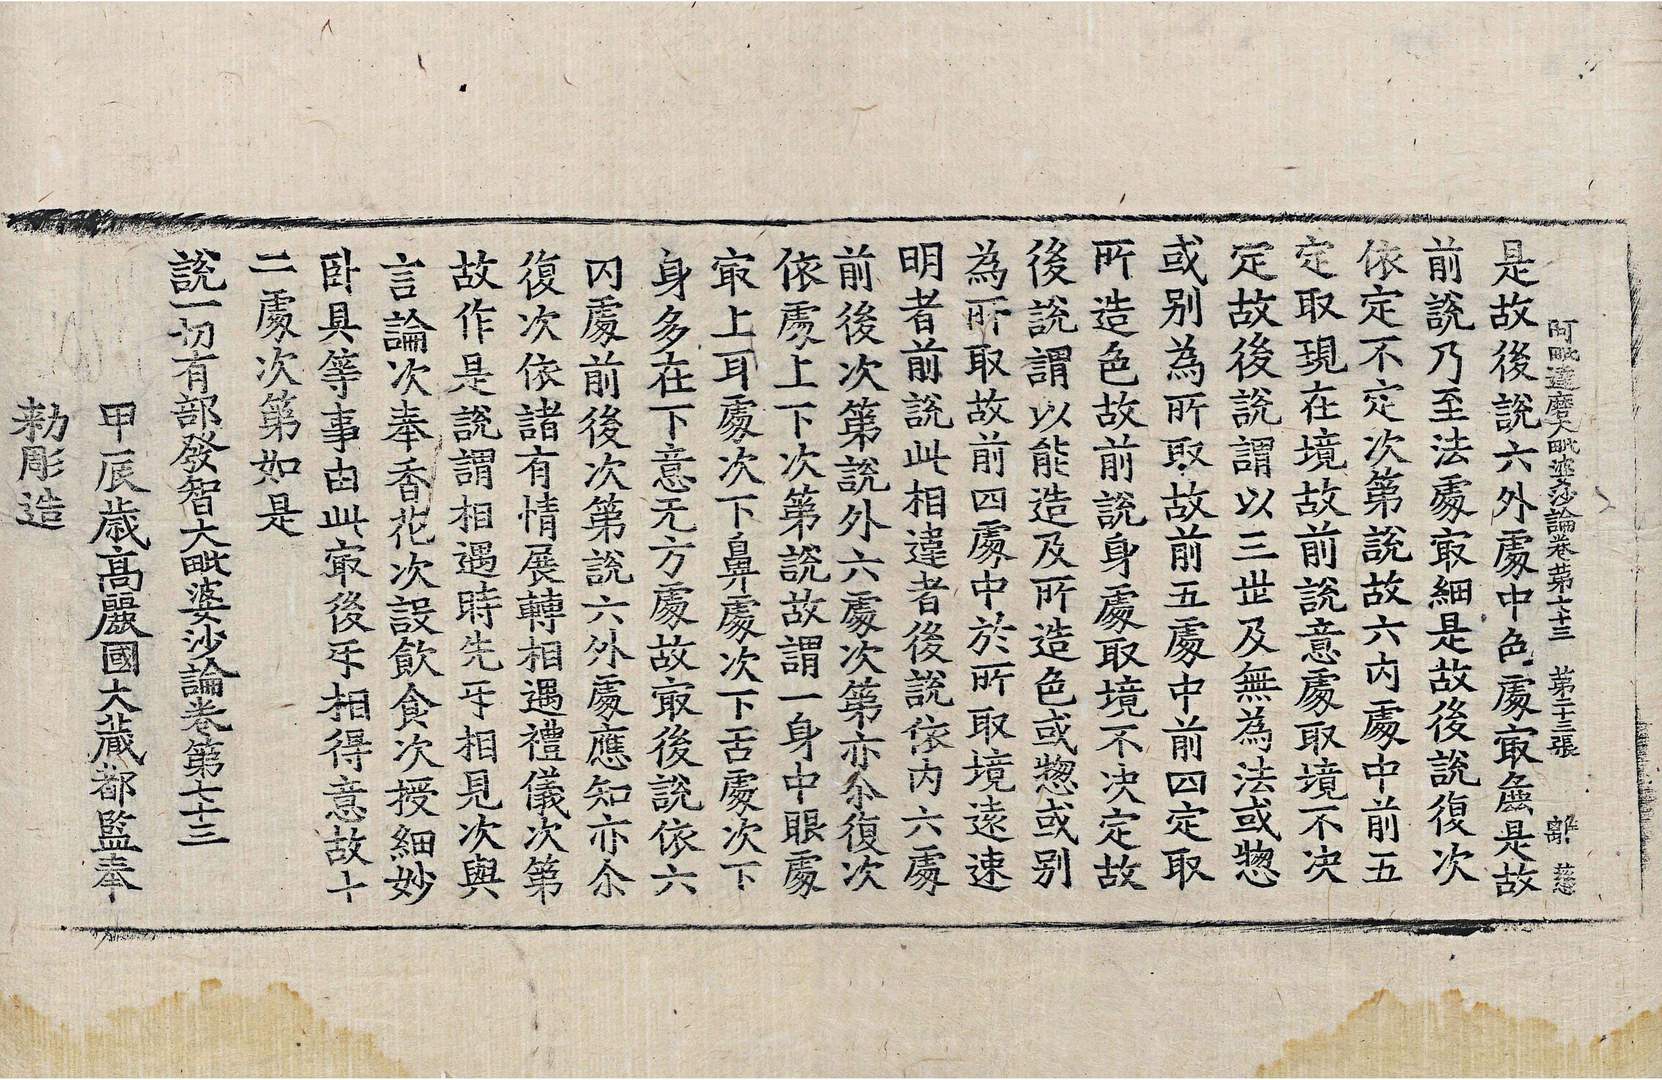 阿毗達磨大毗婆沙論卷第七十三 第二十三張 離 慈
是故後說六外處中色處㝡麁是故
前說乃至法處㝡細是故後說復次
依定不定次第說故六內處中前五
定取現在境故前說意處取境不決
定故後說謂以三世及無為法或惣
或別為所取故前五處中前四定取
所造色故前說身處取境不決定故
後說謂以能造及所造色或惣或別
為所取故前四處中於所取境遠速
明者前說此相違者後說依內六處
前後次第說外六處次第亦尒復次
依處上下次第說故謂一身中眼處
㝡上耳處次下鼻處次下舌處次下
身多在下意无方處故㝡後說依六
內處前後次第說六外處應知亦尒
復次依諸有情展轉相遇禮儀次第
故作是說謂相遇時先㸦相見次與
言論次奉香花次設飲食次授細妙
臥具等事由此㝡後㸦相得意故十
二處次第如是
說一切有部發智大毗婆沙論卷第七十三
甲辰歲高麗國大藏都監奉
勑彫造